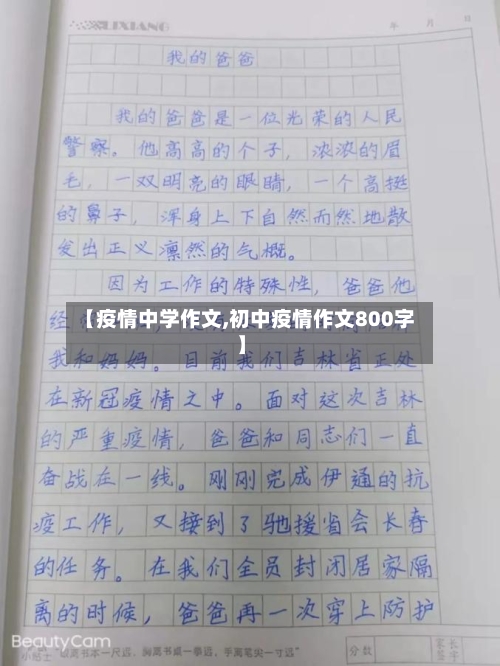 LIXIANG
年 月 日
我的爸爸
我的爸爸是一位光荣的人民
警察。他高高的个子，浓浓的眉
毛，一双明亮的眼睛，一个高挺
的鼻子，浑身上下自然而然地散
发出正义凛然的气概。
因为工作的特殊性，爸爸他
经
【疫情中学作文,初中疫情作文800字
】
我和妈妈。目前我们吉林省正处
在新冠疫情之中。面对这次吉林
的严重疫情，爸爸和同志们一直
奋战在一线。刚刚完成伊通的抗
疫工作，又接到了驰援省会长春
的任务。在我们全员封闭居家隔
离的时候，爸爸再一次穿上防护
BeautyCam
小贴士 眼离书本一尺远，胸离书桌一拳远，手离笔尖一寸远"
分数
家长
签字